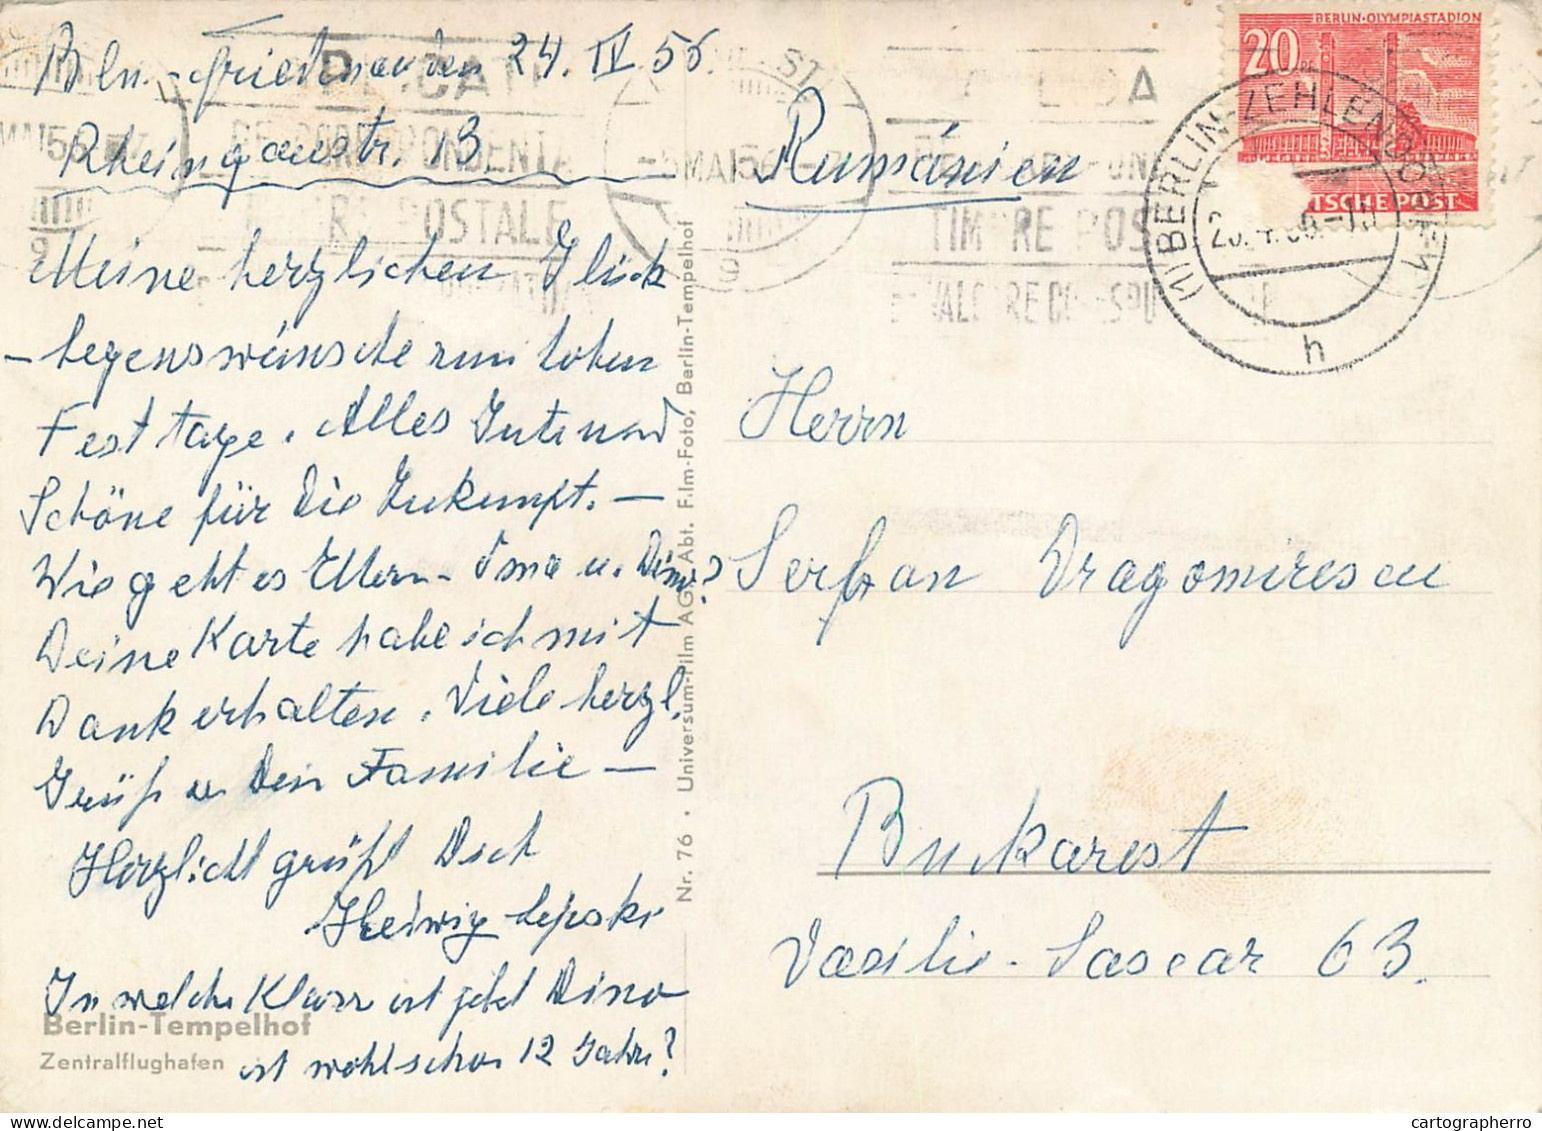 Bln.-Friedenau den 24. IV 56.
Rheingaustr. 13
Meine herzlichen Glück
- segenswünsche zum hohen
Festtage. Alles Gute und
Schöne für die Zukunft. —
Wie geht es Eltern - Oma u. Dino?
Deine Karte habe ich mit
Dank erhalten. Viele herzl.
Grüße u Dein Familie —
Herzlichst grüßt Dich
Hedwig Lepski
In welche Klasse ist jetzt Dino
ist wohl schon 12 Jahre?
Berlin-Tempelhof
Zentralflughafen
Nr. 76 • Universum-Film AG. Abt. Film-Foto, Berlin-Tempelhof
Rumänien
Herrn
Serban Dragomirescu
Bukarest
Vasilie-Lascar 63.
BERLIN-OLYMPIASTADION
20 PF
DEUTSCHE POST
(1) BERLIN-ZEHLENDORF
h
MAI 56
-5 MAI 56
TIMBRE POSTALE
cartographerro